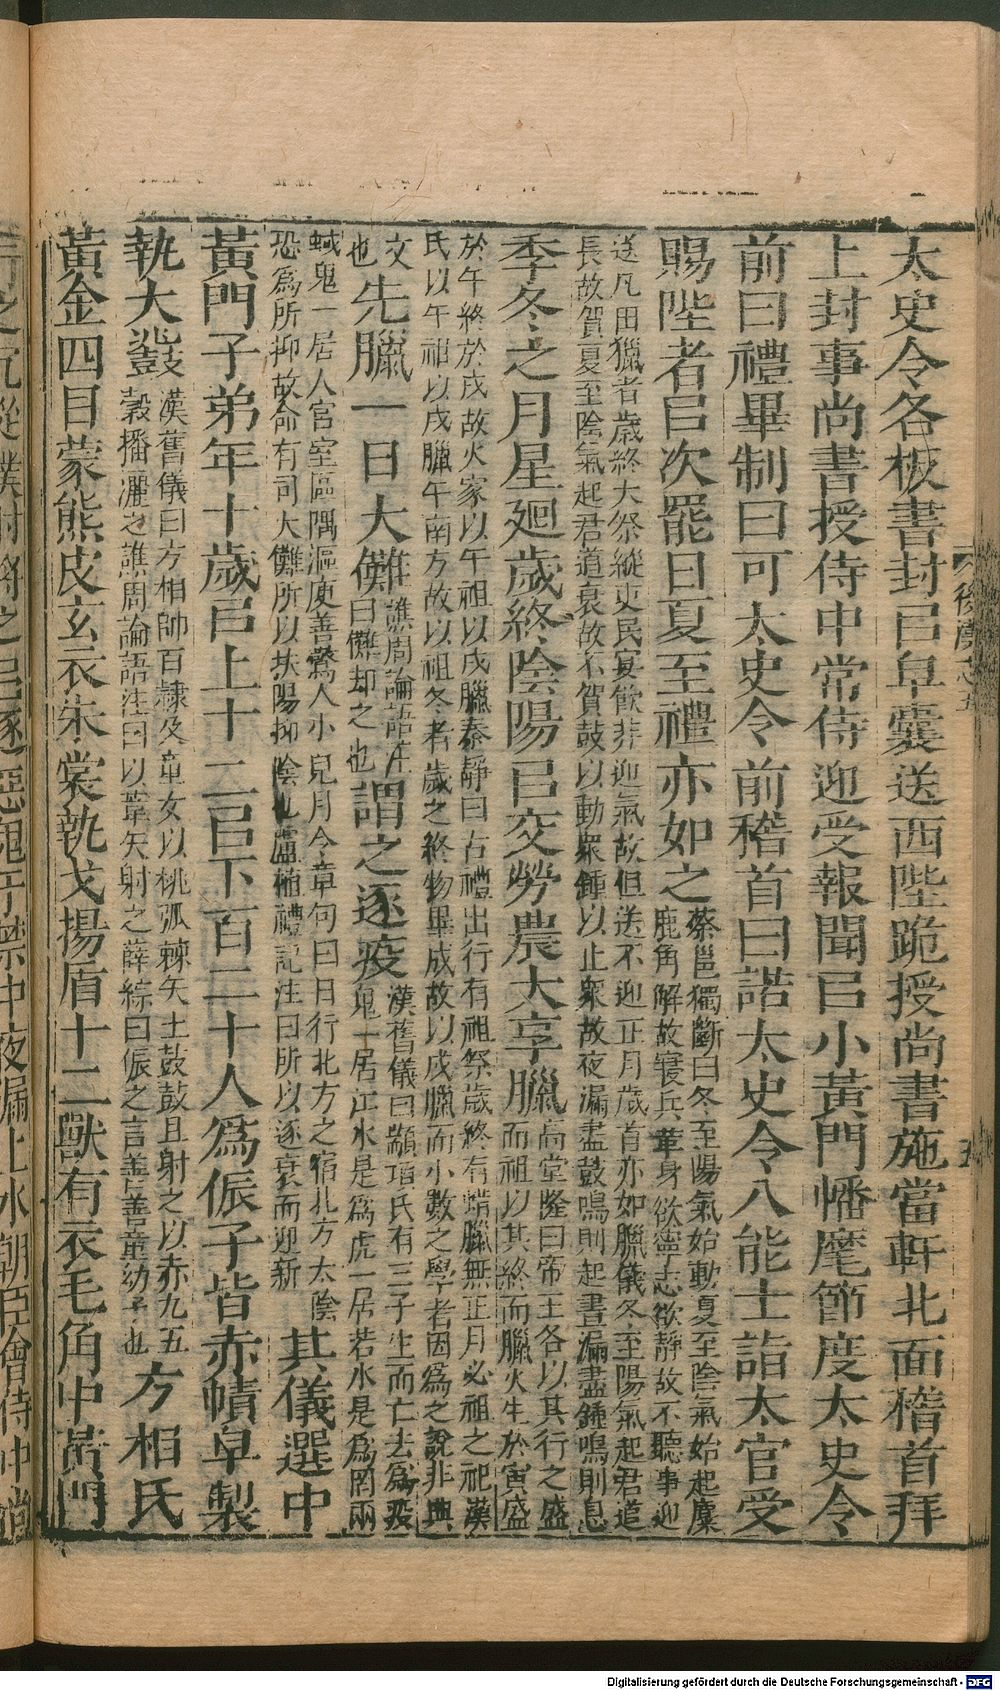 太史令各板書封㠯皁囊送西陛跪授尚書施當軒北面稽首拜
上封事尚書授侍中常侍迎受報聞㠯小黃門幡麾節度太史令
前曰禮畢制曰可太史令前稽首曰諾太史令八能士詣太官受
賜陛者㠯次罷日夏至禮亦如之蔡邕獨斷曰冬至陽氣始動夏至陰氣始起麋
鹿角解故寢兵革身欲寧志欲靜故不聽事迎
送凡田獵者歲終大祭縱吏民宴飲非迎氣故但送不迎正月歲首亦如臘儀冬至陽氣起君道
長故賀夏至陰氣起君道衰故不賀鼓以動衆鍾以止衆故夜漏盡鼓鳴則起晝漏盡鍾鳴則息
季冬之月星廻歲終陰陽㠯交勞農大享臘高堂隆曰帝王各以其行之盛
而祖以其終而臘火生於寅盛
於午終於戌故火家以午祖以戌臘秦靜曰古禮出行有祖祭歲終有蜡臘無正月必祖之祀漢
氏以午祖以戌臘午南方故以祖冬者歲之終物畢成故以戌臘而小數之學者因爲之說非典
文
也先臘一日大儺譙周論語注
曰儺却之也謂之逐疫漢舊儀曰顓頊氏有三子生而亡去爲疫
鬼一居江水是爲虎一居若水是爲罔兩
蜮鬼一居人宮室區隅漚庾善驚人小兒月令章句曰日行北方之宿北方太陰
恐爲所抑故命有司大儺所以扶陽抑陰也盧植禮記注曰所以逐衰而迎新其儀選中
黃門子弟年十歲㠯上十二㠯下百二十人爲侲子皆赤幘皁製
執大鼗漢舊儀曰方相帥百隸及童女以桃弧棘矢土鼓鼓且射之以赤丸五
穀播灑之譙周論語注曰以葦矢射之薛綜曰侲之言善善童幼子也方相氏
黃金四目蒙熊皮玄衣朱裳執戈揚盾十二獸有衣毛角中黃門
行之宂從僕射將之㠯逐惡鬼于禁中夜漏上水朝臣會侍中尚
後漢志五
五
Digitalisierung gefördert durch die Deutsche Forschungsgemeinschaft - DFG